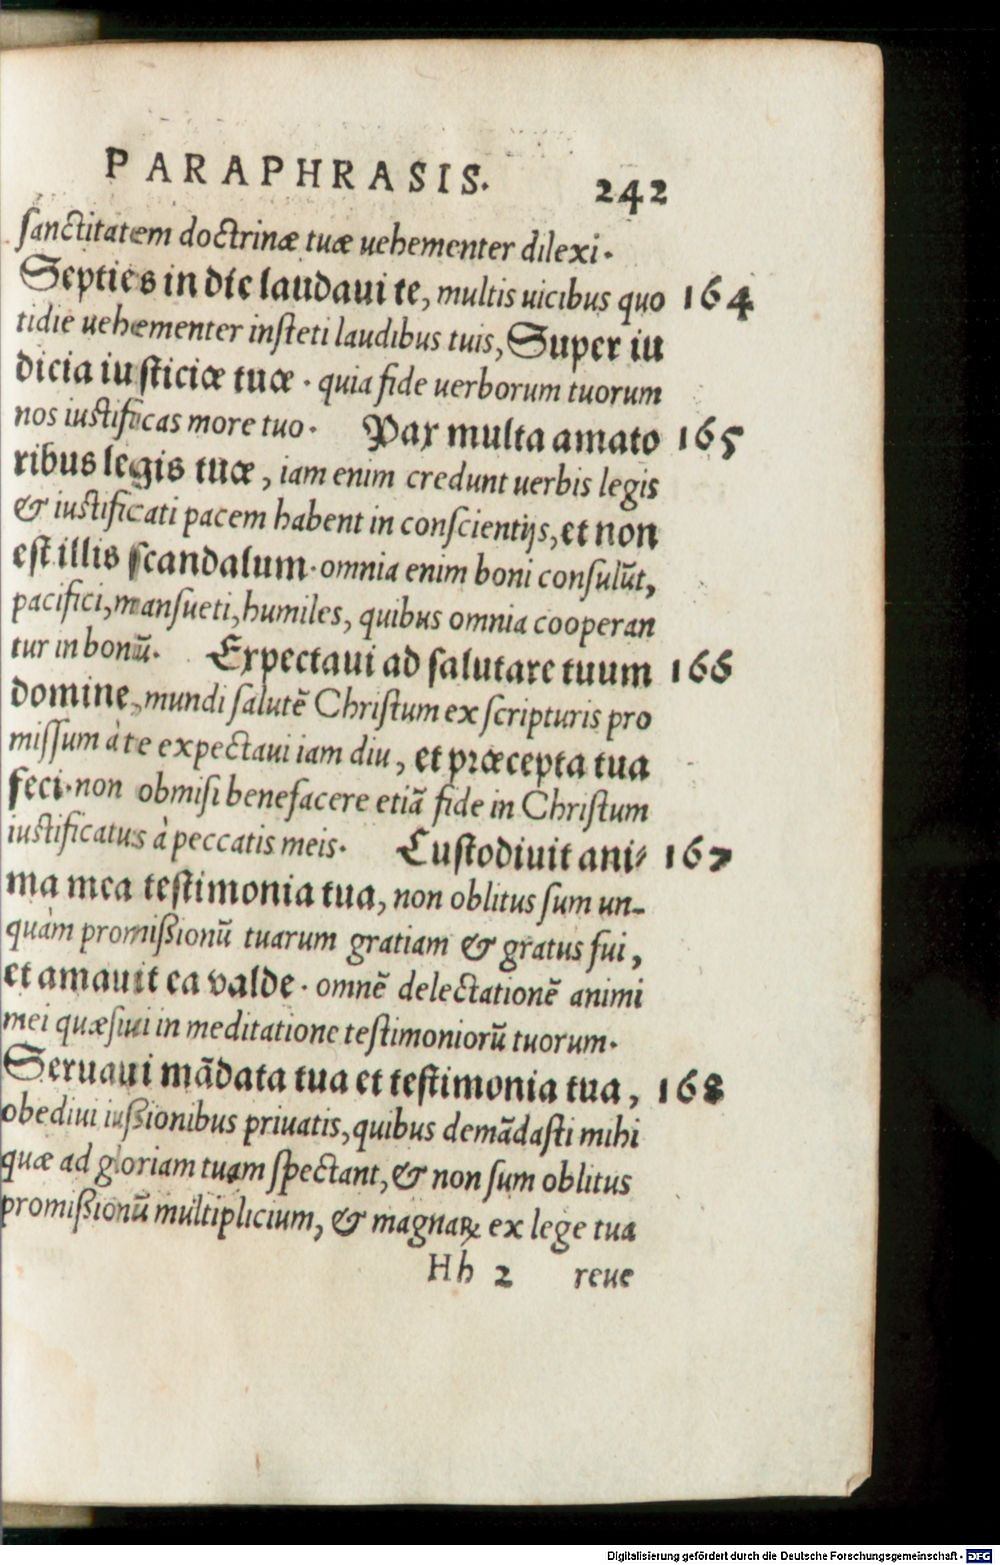 PARAPHRASIS. 242
sanctitatem doctrinæ tuæ uehementer dilexi.
Septies in die laudaui te, multis uicibus quo 164
tidie uehementer insteti laudibus tuis, Super iu
dicia iusticiæ tuæ. quia fide uerborum tuorum
nos iustificas more tuo. Pax multa amato 165
ribus legis tuæ, iam enim credunt uerbis legis
& iustificati pacem habent in conscientijs, et non
est illis scandalum. omnia enim boni consulūt,
pacifici, mansueti, humiles, quibus omnia cooperan
tur in bonū. Expectaui ad salutare tuum 166
domine, mundi salutē Christum ex scripturis pro
missum à te expectaui iam diu, et præcepta tua
feci. non obmisi benefacere etiā fide in Christum
iustificatus à peccatis meis. Custodiuit ani⸗ 167
ma mea testimonia tua, non oblitus sum un-
quàm promißionū tuarum gratiam & gratus fui,
et amauit ea valde. omnē delectationē animi
mei quæsiui in meditatione testimoniorū tuorum.
Seruaui mādata tua et testimonia tua, 168
obediui iußionibus priuatis, quibus demādasti mihi
quæ ad gloriam tuam spectant, & non sum oblitus
promißionū multiplicium, & magnaꝝ ex lege tua
Hh 2 reue
Digitalisierung gefördert durch die Deutsche Forschungsgemeinschaft - DFG